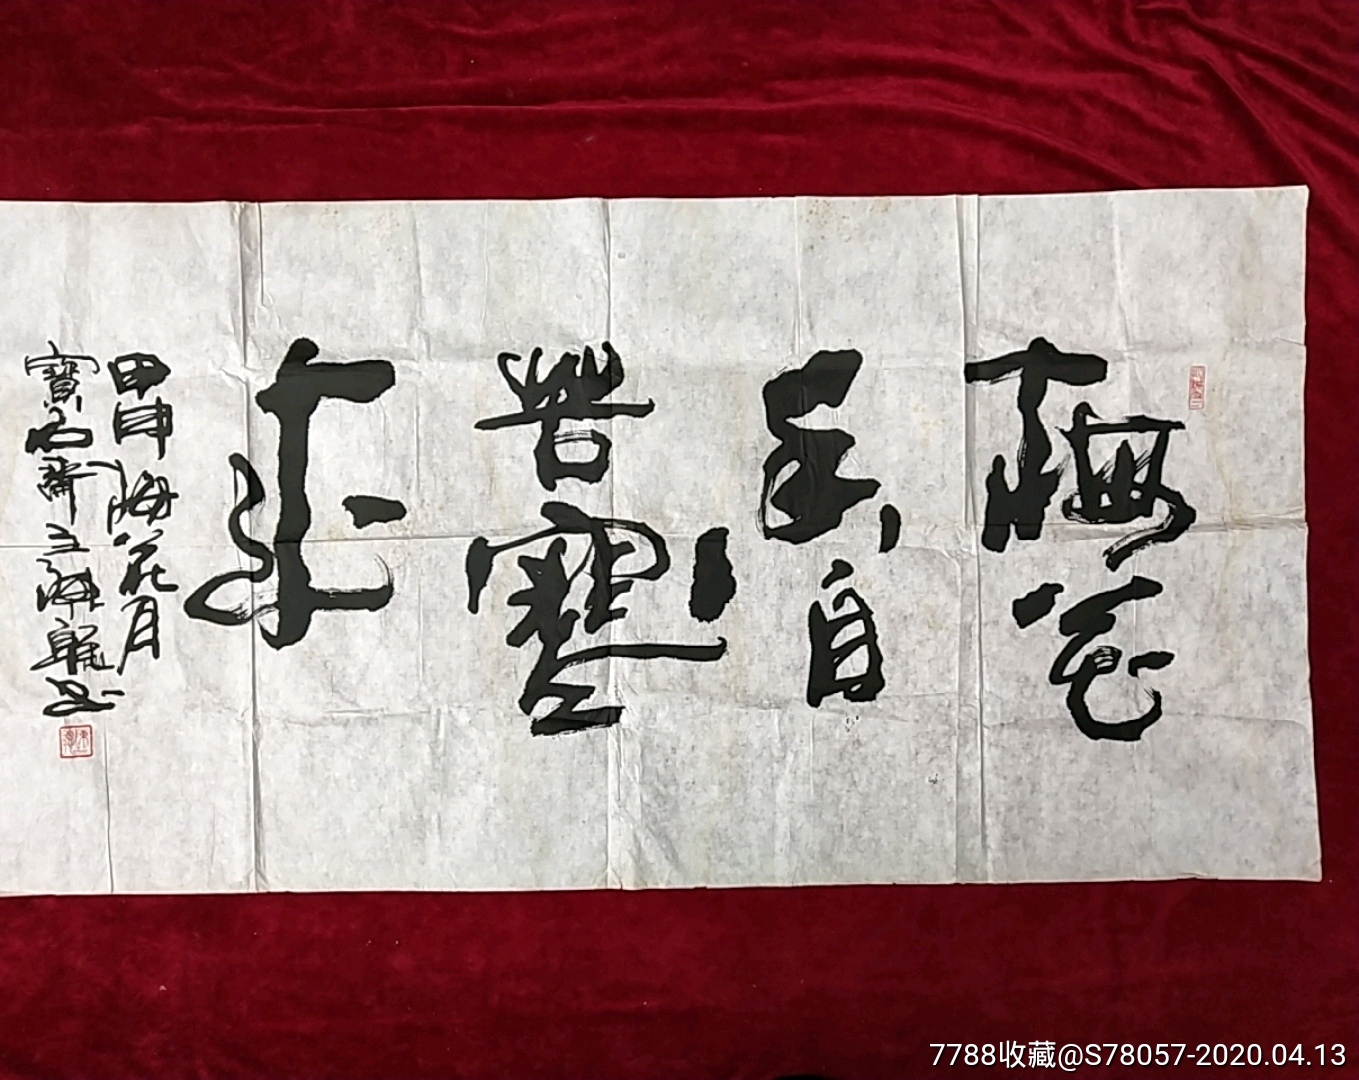 梅花
香自
苦寒
来
甲申梅花月
寶石齋主書
7788收藏@S78057-2020.04.13